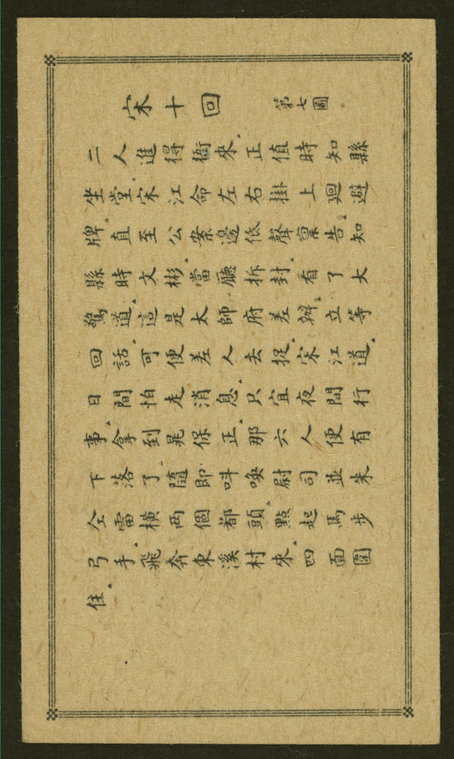 宋十回 第七圖
二人進得衙來、正值時知縣
坐堂、宋江命左右掛上廻避
牌、直至公案邊低聲稟告、知
縣時文彬、當廳拆封、看了大
驚道、這是太師府差辦、立等
回話、可便差人去捉、宋江道、
日間怕走消息、只宜夜間行
事、拿到晁保正、那六人便有
下落了、隨即叫喚尉司並朱
仝雷橫兩個都頭、點起馬步
弓手、飛奔東溪村來、四面圍
住、